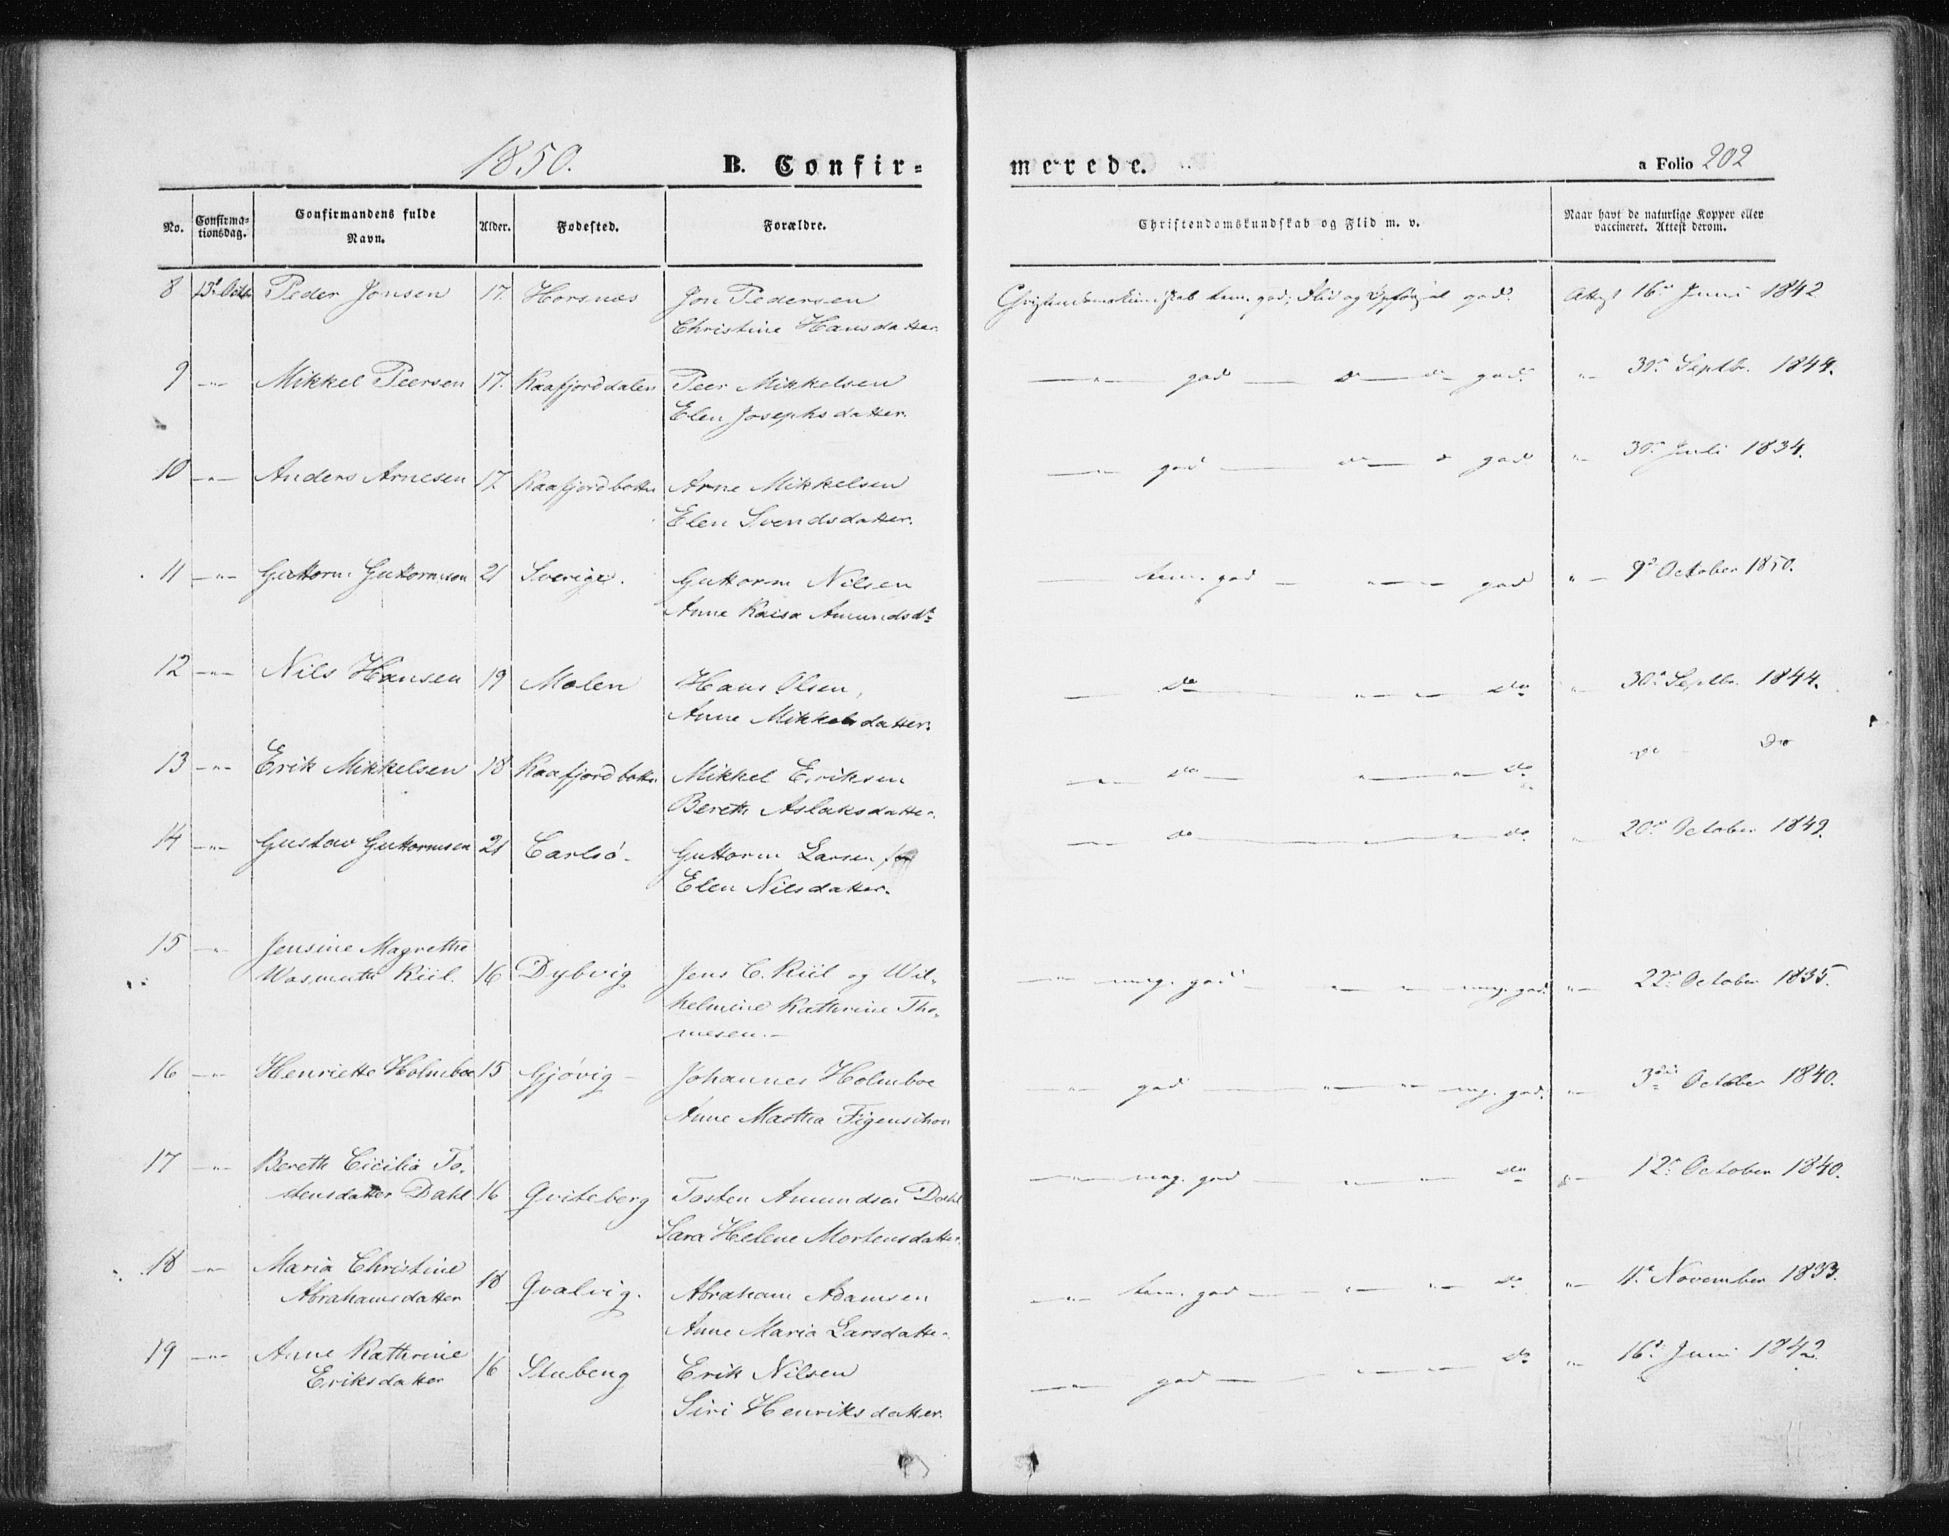 1850. B. Confir- merede. a Folio 202
No. Confirma-tionsdag. Confirmandens fulde Navn. Alder. Fødested. Forældre. Christendomskundskab og Flid m. v. Naar havt de naturlige Kopper eller vaccineret. Attest derom.
8 13de Octbr Peder Jonsen 17. Horsnæs Jon Pedersen Christendomskundskab tem. god; Flid og Opførsel god. Attest 16de Juni 1842
Christine Hansdatter.
9 —"— Mikkel Peersen 17. Kaafjorddalen Peer Mikkelsen —"— god — do — do god. " 30te Septbr. 1844.
Elen Josephsdatter.
10 —"— Anders Arnesen 17 Kaafjordbotten Arne Mikkelsen —"— god — " — " god "— 30te Juli 1834.
Elen Svendsdatter.
11 —"— Guttorm Guttormsen 21 Sverige. Guttorm Nilsen — tem. god — "—"— god "— 9de October 1850.
Anne Kaisa Amundsdr
12 —"— Nils Hansen 19 Molen Hans Olsen, — do — "—"— do " 30te Septbr. 1844.
Anne Mikkelsdatter.
13 —"— Erik Mikkelsen 18 Kaafjordbotten Mikkel Eriksen —"— do — "—"— do do do
Bereth Aslaksdatter.
14 —"— Gustav Guttormsen 21 Carlsø- Guttorm Larsen —"— do — "—"— do " 20de October 1849.
Elen Nilsdatter.
15 —"— Jensine Magrethe
Wasmuth Kiil. 16 Dybvig Jens C. Kiil og Wil- —"— meg. god — "—"— meg. god. "— 22de October 1835.
helmine Kathrine Tho-
mesen.—
16 —"— Henriette Holmboe 15 Gjøvig — Johannes Holmboe —"— god — "—"— meg. god. "— 3die October 1840.
Anne Martha Figenschou
17 —"— Bereth Cicilia To-
stensdatter Dahl 16 Qviteberg Tosten Amundsen Dahl —"— meg. god — "—"— do "— 12te October 1840.
Sara Helene Mortensdatter.
18 —"— Maria Christine
Abrahamsdatter 18 Qvalvig. Abraham Adamsen —"— tem. god — "—"— do "— 11te November 1833.
Anne Maria Larsdatter.
19 —"— Anne Kathrine
Eriksdatter 16 Stubeng Erik Nilsen —"— god — "—"— do "— 16de Juni 1842.
Siri Henriksdatter.